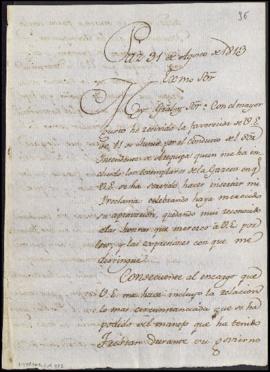 36
Paz 31 de Agosto de 1813
Exmo Sor
Con el mayor
gusto he recivido la favorecida de V.E.
de 11 de Junio por el conducto del Sor
Intendente de Arequipa quien me ha en
los exemplares de la Gazeta en q.
V.E. se ha servido hacer incertar mi
Proclama celebrando haya merecido
su aprovacion, quedando muy reconocido
a las honras que merezco à V.E. por
y las expreciones con que me
distingue.
Consecuente al encargo que
V.E. me hace incluyo la relacion
lo mas circunstanciada que se ha
podido del manejo que ha tenido
durante su govierno